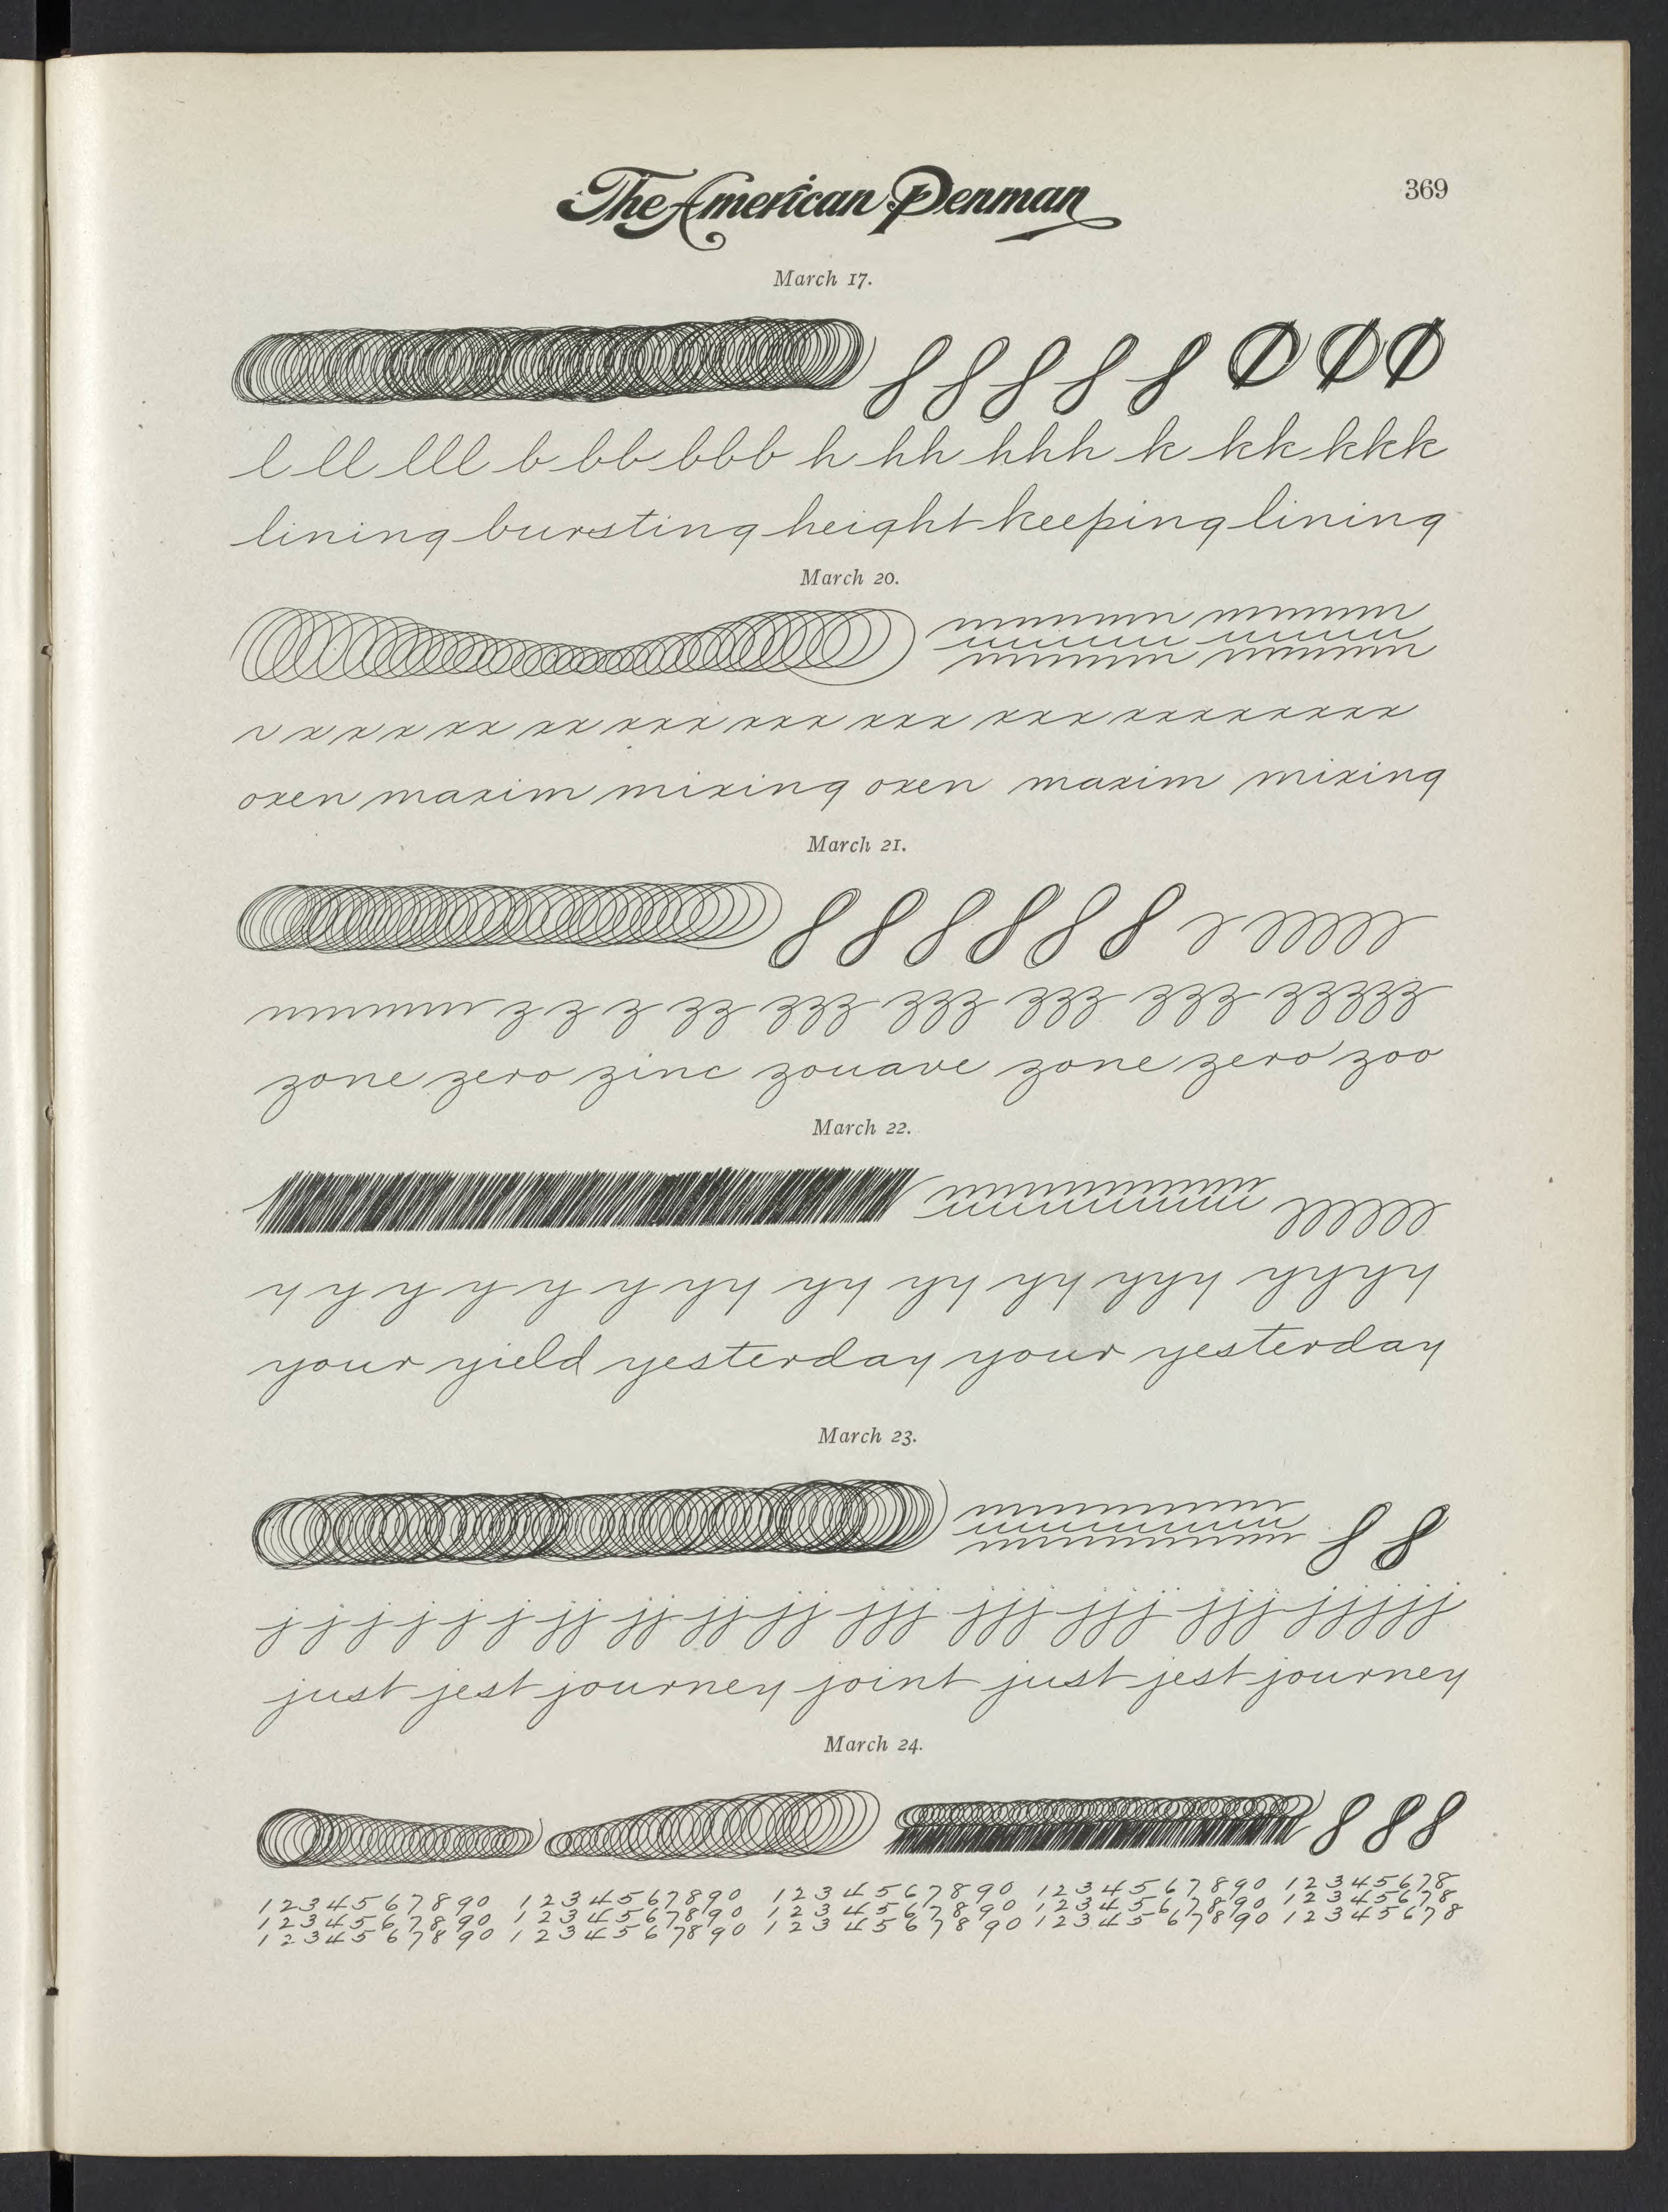 The American Penman
369
March 17.
l ll lll b bb bbb h hh hhh k kk kkk
lining bursting height keeping lining
March 20.
x x x x xx xx xxx xxx xxx xxx xxxxxxxx
oxen maxim mixing oxen maxim mixing
March 21.
z z z zz zzz zzz zzz zzz zzzzz
zone zero zinc zouave zone zero zoo
March 22.
y y y y y y yy yy yy yy yyy yyyy
your yield yesterday your yesterday
March 23.
j j j j j j jj jj jj jj jjj jjj jjj jjj jjjjj
just jest journey joint just jest journey
March 24.
1234567890 1234567890 1234567890 1234567890 12345678
1234567890 1234567890 1234567890 1234567890 12345678
1234567890 1234567890 1234567890 1234567890 12345678